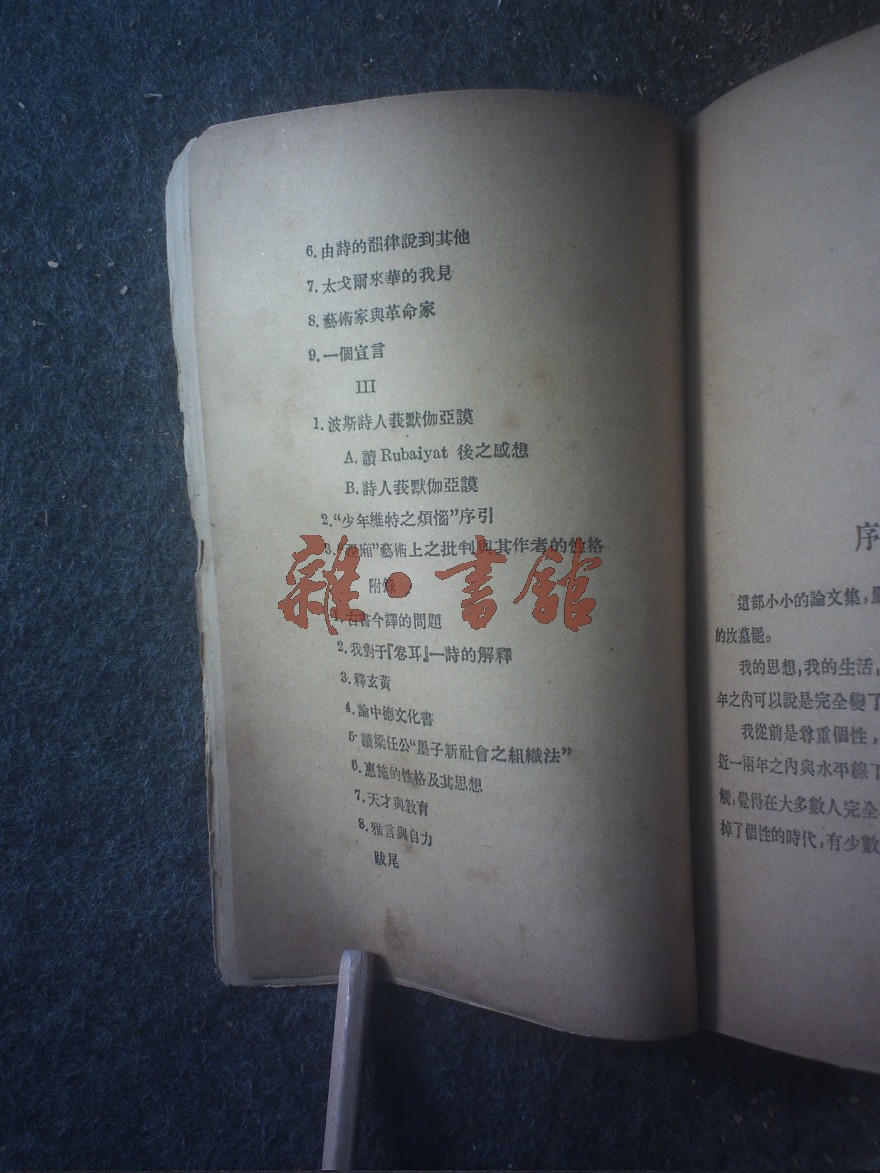 6.由詩的韻律說到其他
7.太戈爾來華的我見
8.藝術家與革命家
9.一個宣言
III
1.波斯詩人莪默伽亞謨
A.讀Rubaiyat 後之感想
B.詩人莪默伽亞謨
2.“少年維特之煩惱”序引
3.“西廂”藝術上之批判與其作者的性格
附錄
1.古書今譯的問題
2.我對于『卷耳』一詩的解釋
3.釋玄黃
4.論中德文化書
5.讀梁任公“墨子新社會之組織法”
6.惠施的性格及其思想
7.天才與教育
8.雅言與自力
跋尾
雜·書館
序
這部小小的論文集,
的坟墓罷。
我的思想,我的生活,
年之內可以說是完全變了
我從前是尊重個性,
近一兩年之內與水平線下
觸,覺得在大多數人完全
掉了個性的時代,有少數